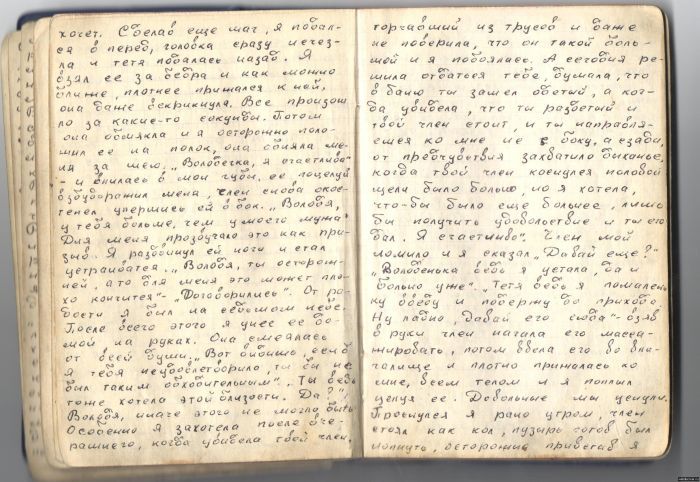 хочет. Сделав еще шаг, я подал-
ся вперед, головка сразу исчез-
ла и тетя подалась назад. Я
взял ее за бедра и как можно
ближе, плотнее прижался к ней,
она даже вскрикнула. Все произош
ло за какие-то секунды. Потом
она обмякла и я осторожно поло-
жил ее на полок, она обняла ме-
ня за шею. „Володечка, я счастлива"
- и впилась в мои губы. ее поцелуй
взбудоражил меня, член снова окос-
тенел, упершись ей в бок. „Володя,
у тебя больше, чем у моего мужа"
Для меня прозвучало это как при-
зыв. Я раздвинул ей ноги и стал
устраиваться. „Володя, ты осторож-
ней, а то для меня это может пло-
хо кончится" - „Договорились". От ра-
дости я был на седьмом небе.
После всего этого я унес ее до-
мой на руках. Она смеялась
от всей души. „Вот видишь, если б
я тебя неудовлетворила, ты бы не
был таким обходительным". „Ты ведь
тоже хотела этой близости. Да?",
Володя, иначе этого не могло быть
Особенно я захотела после вче-
рашнего, когда увидела твой член,
торчавший из трусов и даже
не поверила, что он такой боль-
шой и я побоялась. А сегодня ре-
шила отдаться тебе, думала, что
в баню ты зашел одетый, а ког-
да увидела, что ты раздетый и
твой член стоит, и ты направля-
ешся ко мне не с боку, а сзади,
от предчувствия захватило дыханье,
когда твой член коснулся половой
щели было больно, но я хотела,
что-бы было еще больнее, лишь
бы получить удовольствие и ты его
дал. Я счастлива". Член мой
ломило и я сказал „Давай еще?"
„Володенька ведь я устала, да и
больно уже". „Тетя ведь я помален
ку введу и подержу до прихода.
Ну ладно, давай его сюда" - взяв
в руки член начала его масса-
жировать, потом ввела его во вла-
галище и плотно прижалась ко
мне, всем телом и я поплыл
целуя ее. Довольные мы уснули.
Проснулся я рано утром, член
стоял как кол, пузырь готов был
лопнуть, осторожно привстав я